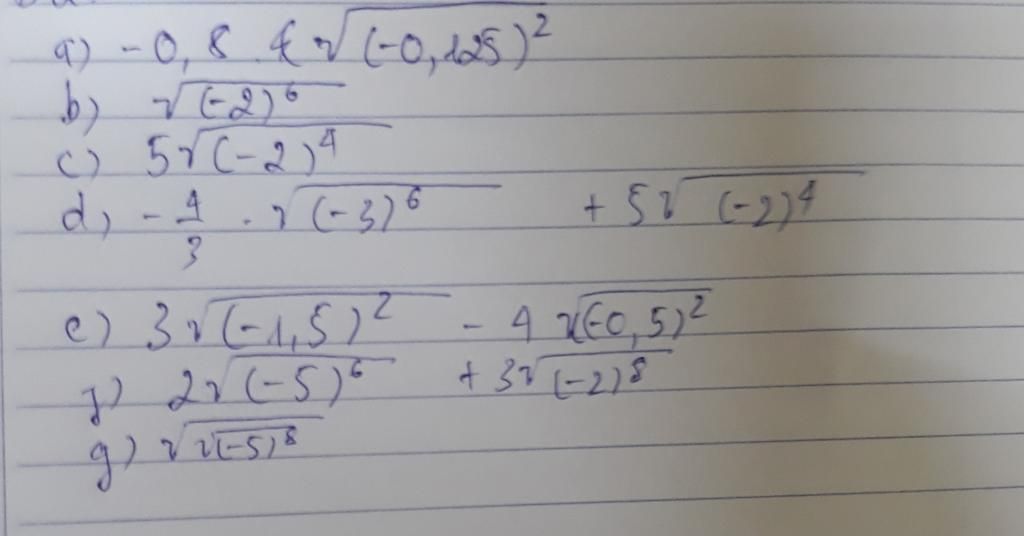 a) -0,8 . 4 √(-0,125)²
b) √(-2)⁶
c) 5√(-2)⁴
d) -4/3 . √(-3)⁶ + 5√(-2)⁴
e) 3√(-1,5)² - 4 √(-0,5)²
f) 2√(-5)⁶ + 3√(-2)⁸
g) √√(-5)⁸